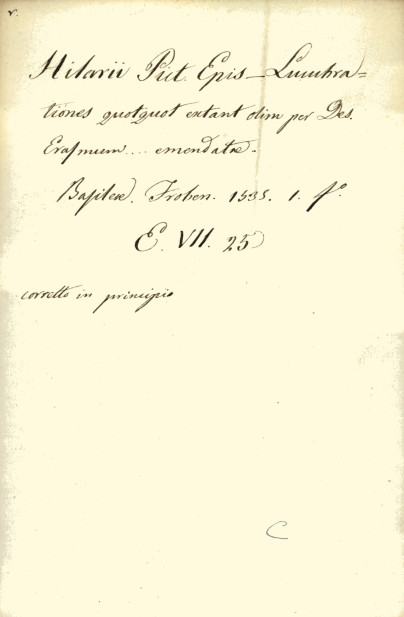 v.
Hilarii Pict. Epis_ Lucubra=
tiones quotquot extant olim per Des.
Erasmum .... emendatæ.
Basileæ. Froben. 1535. 1. fº.
E. VII. 25
corretto in principio
C